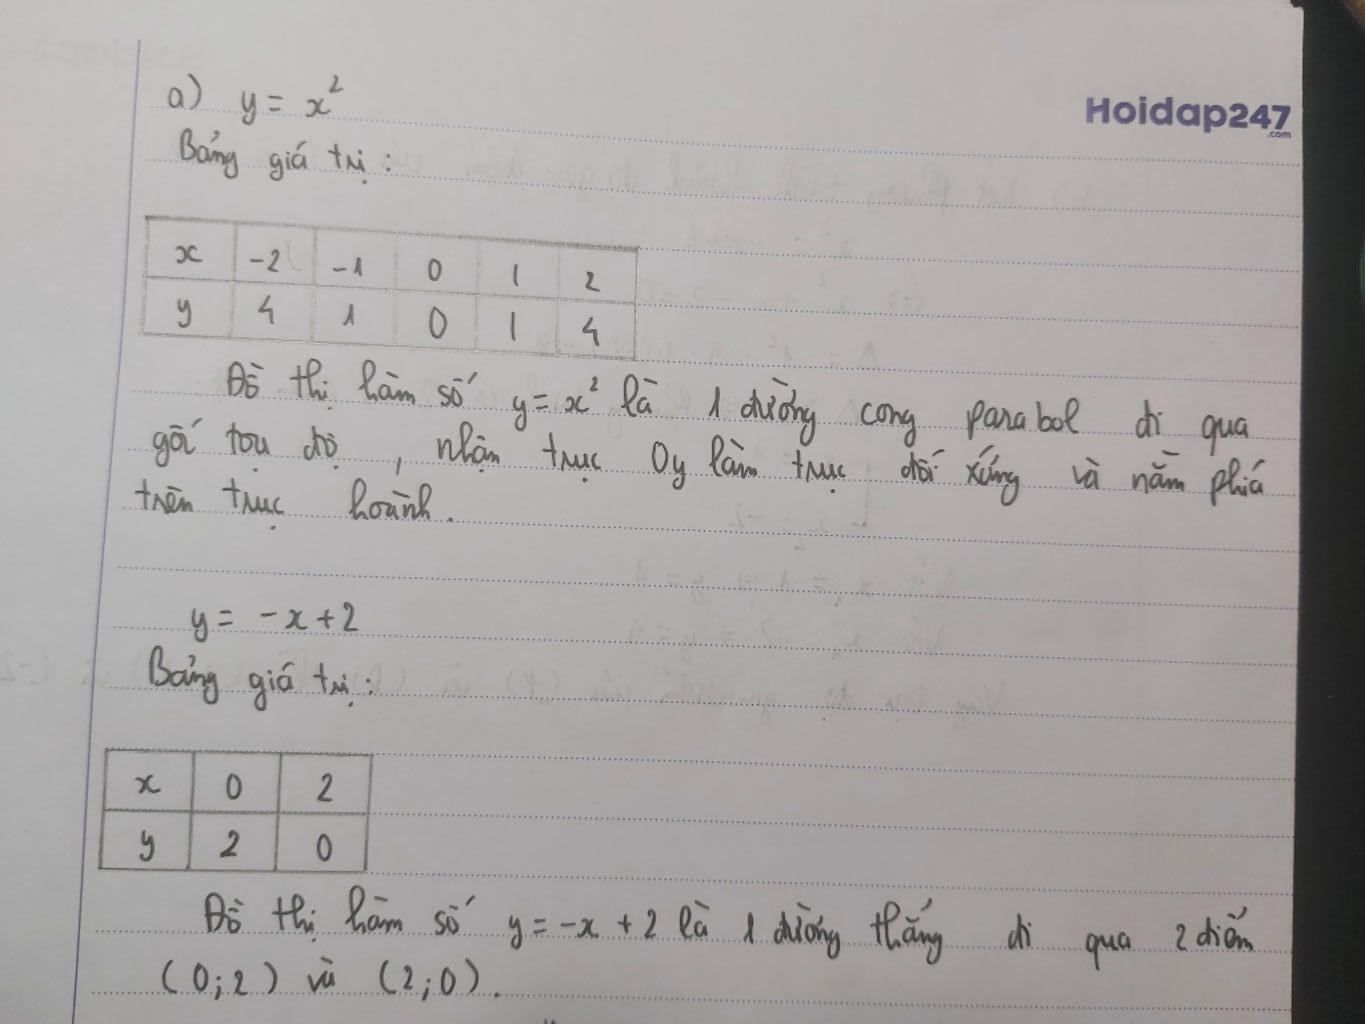 a) y = x²
Hoidap247
.com
Bảng giá trị :
x -2 -1 0 1 2
y 4 1 0 1 4
Đồ thị hàm số y = x² là 1 đường cong parabol đi qua
gốc tọa độ , nhận trục Oy làm trục đối xứng và nằm phía
trên trục hoành.
y = -x + 2
Bảng giá trị :
x 0 2
y 2 0
Đồ thị hàm số y = -x + 2 là 1 đường thẳng đi qua 2 điểm
(0;2) và (2;0).